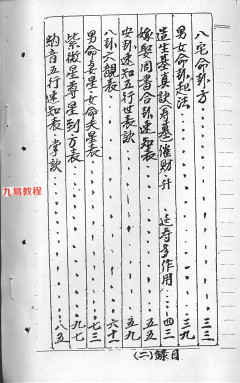 八宅命卦方‥‥‥三三
男女命卦起法‥‥‥三九
造生基真訣寿墓催財升 延寿多作用‥‥四三
嫁娶同書合卦速知表‥‥五五
安卦速知五行生表訣‥‥五九
八卦六親表‥‥‥六十一
男命妻星女命夫星表‥‥七三
紫微星尋星到方表‥‥‥九七
納音五行速知表‥掌訣‥‥八五
目錄(二)
九易教程